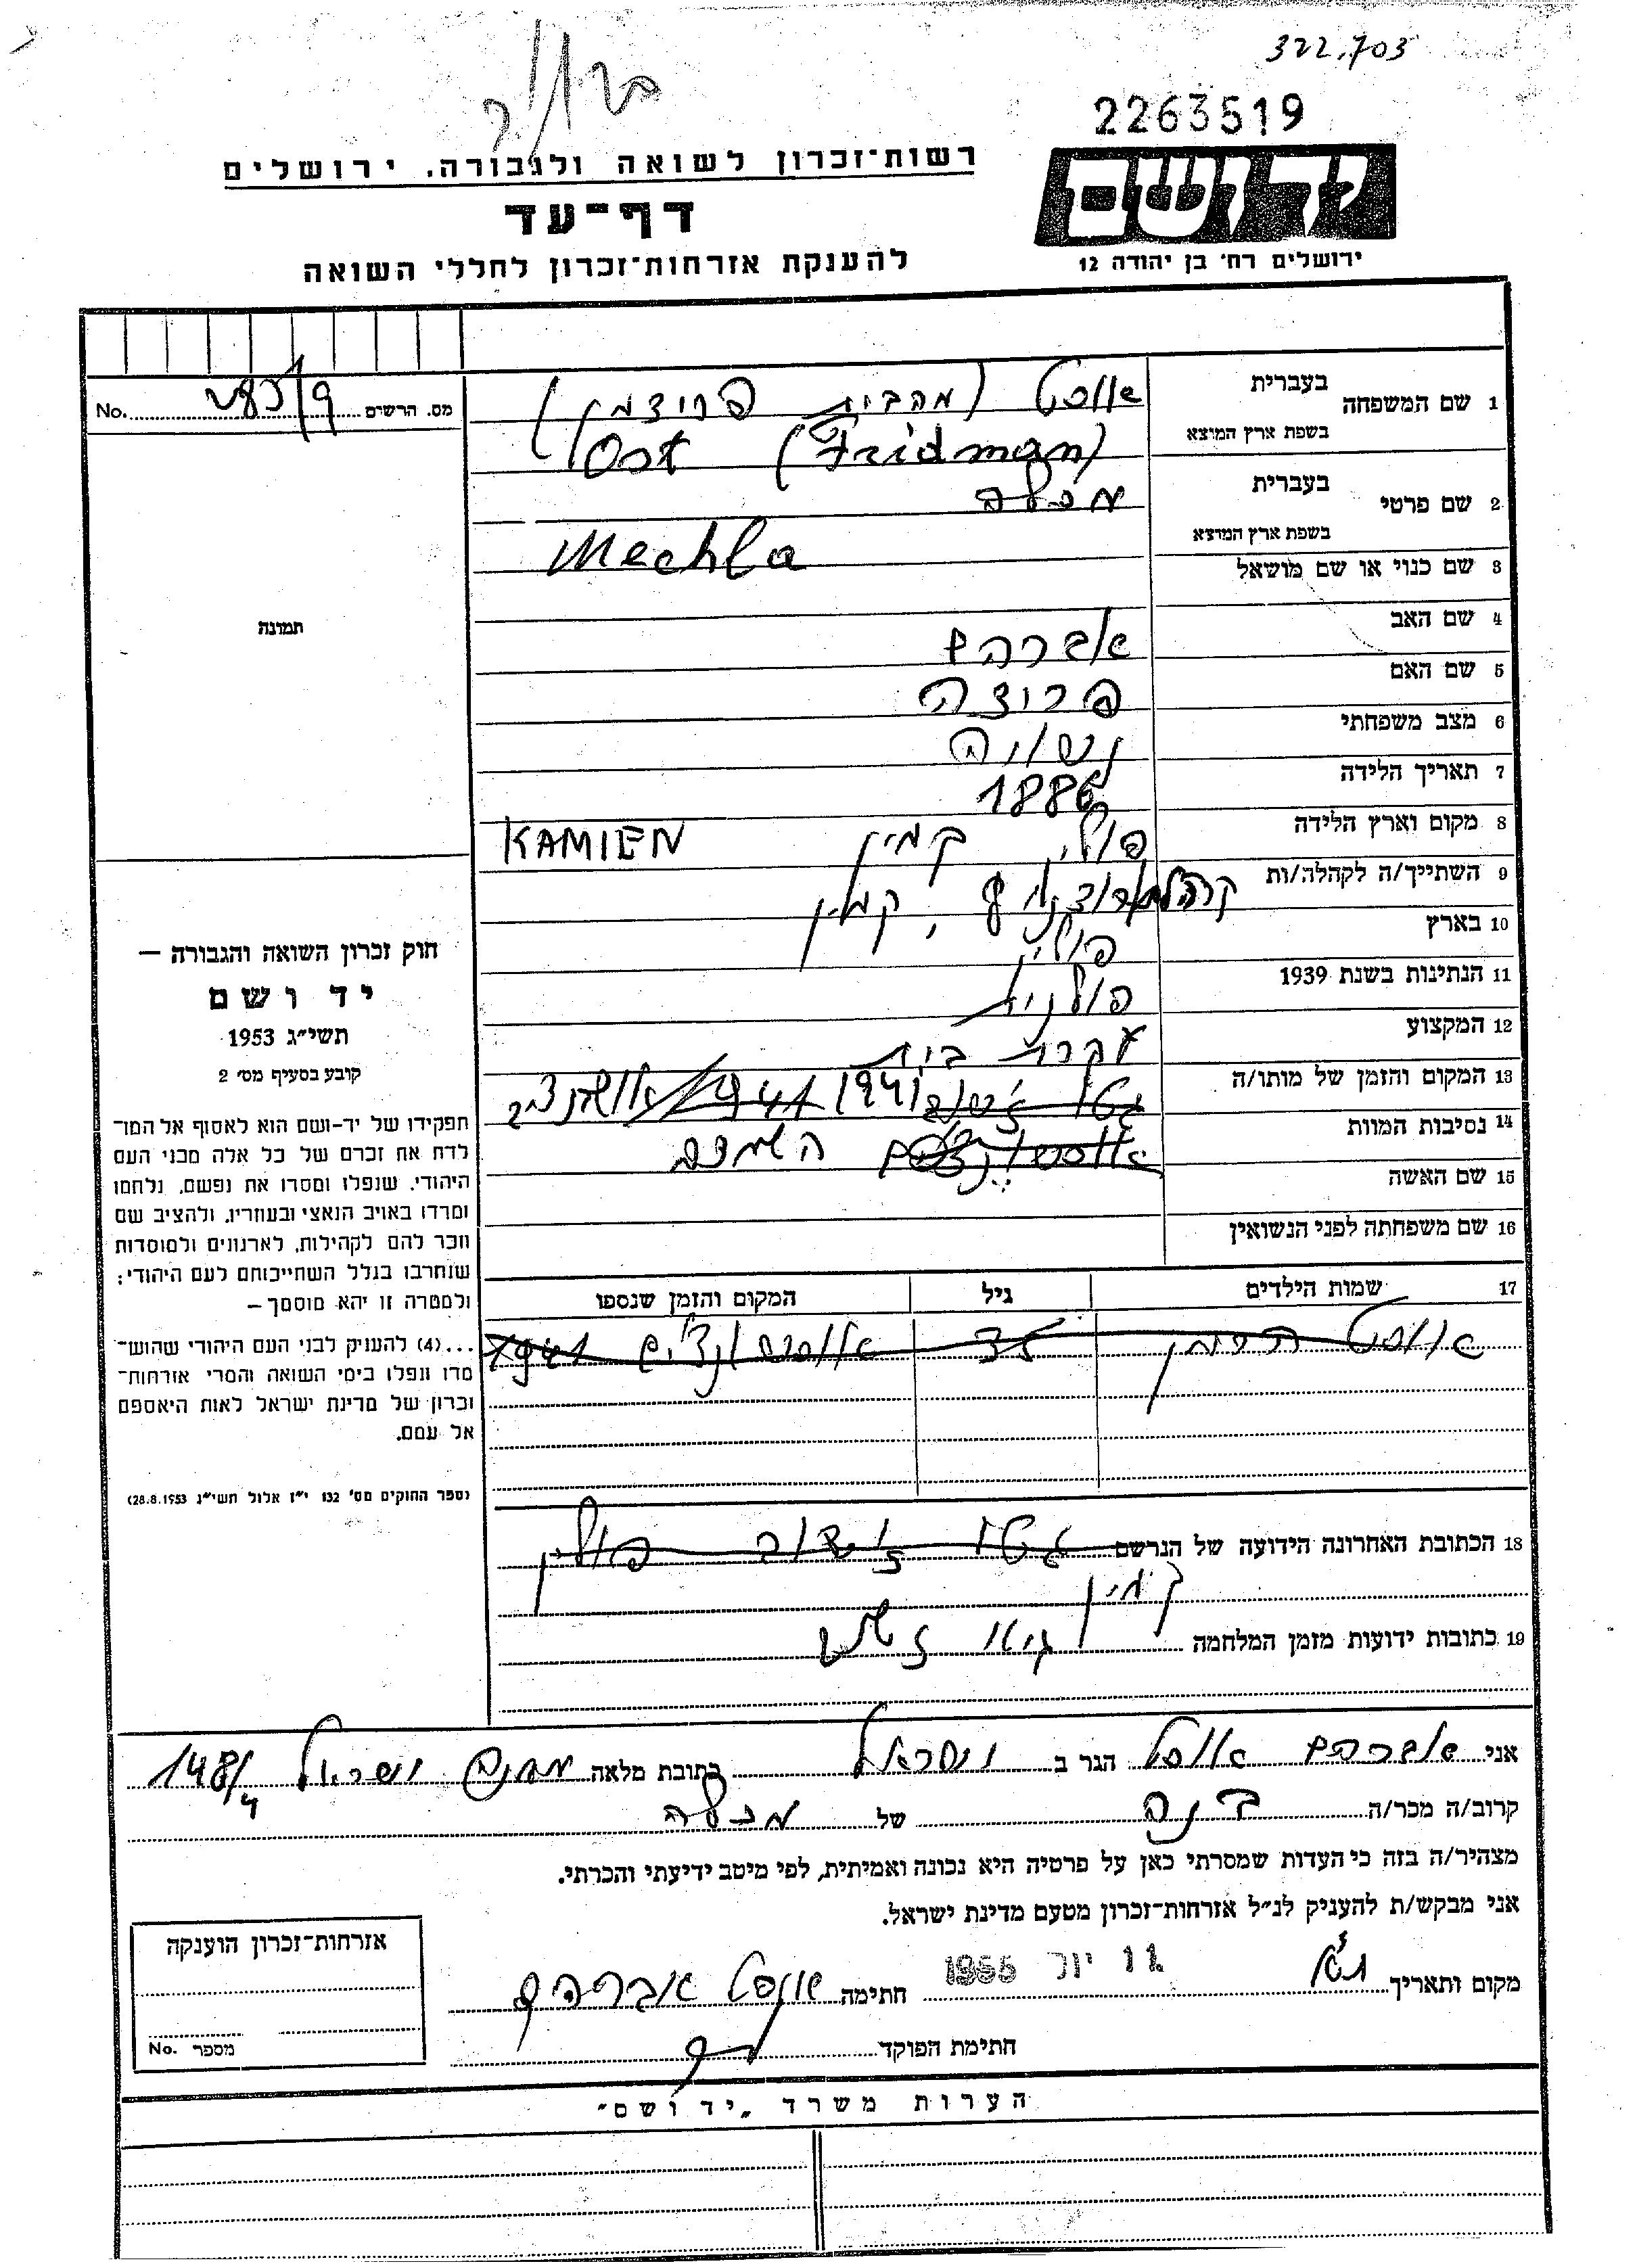 322,703
2263519
ידושם
ירושלים רח׳ בן יהודה 12
רשות־זכרון לשואה ולגבורה. ירושלים
דף־עד
להענקת אזרחות־זכרון לחללי השואה
מס. הרשים No.
1 שם המשפחה בעברית אוסט (מהבית פרידמן)
בשפת ארץ המוצא Ost (Fridman)
2 שם פרטי בעברית מכלה
בשפת ארץ המוצא Mechla
3 שם כנוי או שם מושאל
4 שם האב אברהם
5 שם האם פרידה
6 מצב משפחתי נשואה
7 תאריך הלידה 1886
8 מקום וארץ הלידה פולין קמין KAMIEN
9 השתייך/ה לקהלה/ות קמין
10 בארץ פולין
11 הנתינות בשנת 1939 פולנית
12 המקצוע עקרת בית
13 המקום והזמן של מותו/ה גטו 1941
14 נסיבות המוות
15 שם האשה
16 שם משפחתה לפני הנשואין
17 שמות הילדים גיל המקום והזמן שנספו
אוסט 1941
18 הכתובת האחרונה הידועה של הנרשם גטו פולין
קמין
19 כתובות ידועות מזמן המלחמה
תמונה
חוק זכרון השואה והגבורה —
יד ושם
תשי״ג 1953
קובע בסעיף מס׳ 2
תפקידו של יד-ושם הוא לאסוף אל המו־
לדת את זכרם של כל אלה מבני העם
היהודי, שנפלו ומסרו את נפשם, נלחמו
ומרדו באויב הנאצי ובעוזריו, ולהציב שם
וזכר להם לקהילות, לארגונים ולמוסדות
שנחרבו בגלל השתייכותם לעם היהודי;
ולמטרה זו יהא מוסמך —
...(4) להעניק לבני העם היהודי שהוש־
מדו ונפלו בימי השואה והמרי אזרחות־
זכרון של מדינת ישראל לאות היאספם
אל עמם.
(ספר החוקים מס׳ 132 י״ז אלול תשי״ג 28.8.1953)
אני אברהם אוסט הגר ב ישראל כתובת מלאה מחנה ישראל 148/4
קרוב/ה מכר/ה בנה של מכלה
מצהיר/ה בזה כי העדות שמסרתי כאן על פרטיה היא נכונה ואמיתית, לפי מיטב ידיעתי והכרתי.
אני מבקש/ת להעניק לנ״ל אזרחות־זכרון מטעם מדינת ישראל.
מקום ותאריך 11 יול 1955 חתימה אוסט אברהם
חתימת הפוקד
אזרחות־זכרון הוענקה
מספר No.
הערות משרד „יד ושם״